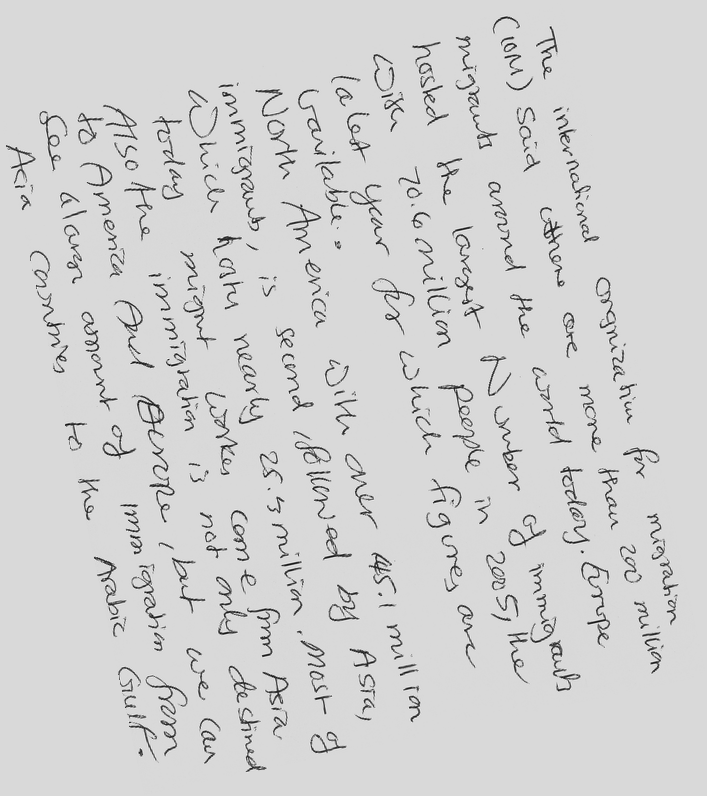 The international orgnization for migration
(IOM) said there are more than 200 million
migrants around the world today. Europe
hosted the largest Number of immigrants
with 70.6 million people in 2005, the
latest year for which figures are
available.
North America with over 45.1 million
immigrants, is second, followed by Asia,
which hosts nearly 25.3 million. Most of
today migrnt workes come from Asia
Also the immigration is not only destined
to America And Europe, but we can
see alarge amount of immigration from
Asia countries to the Arabic Gulf.